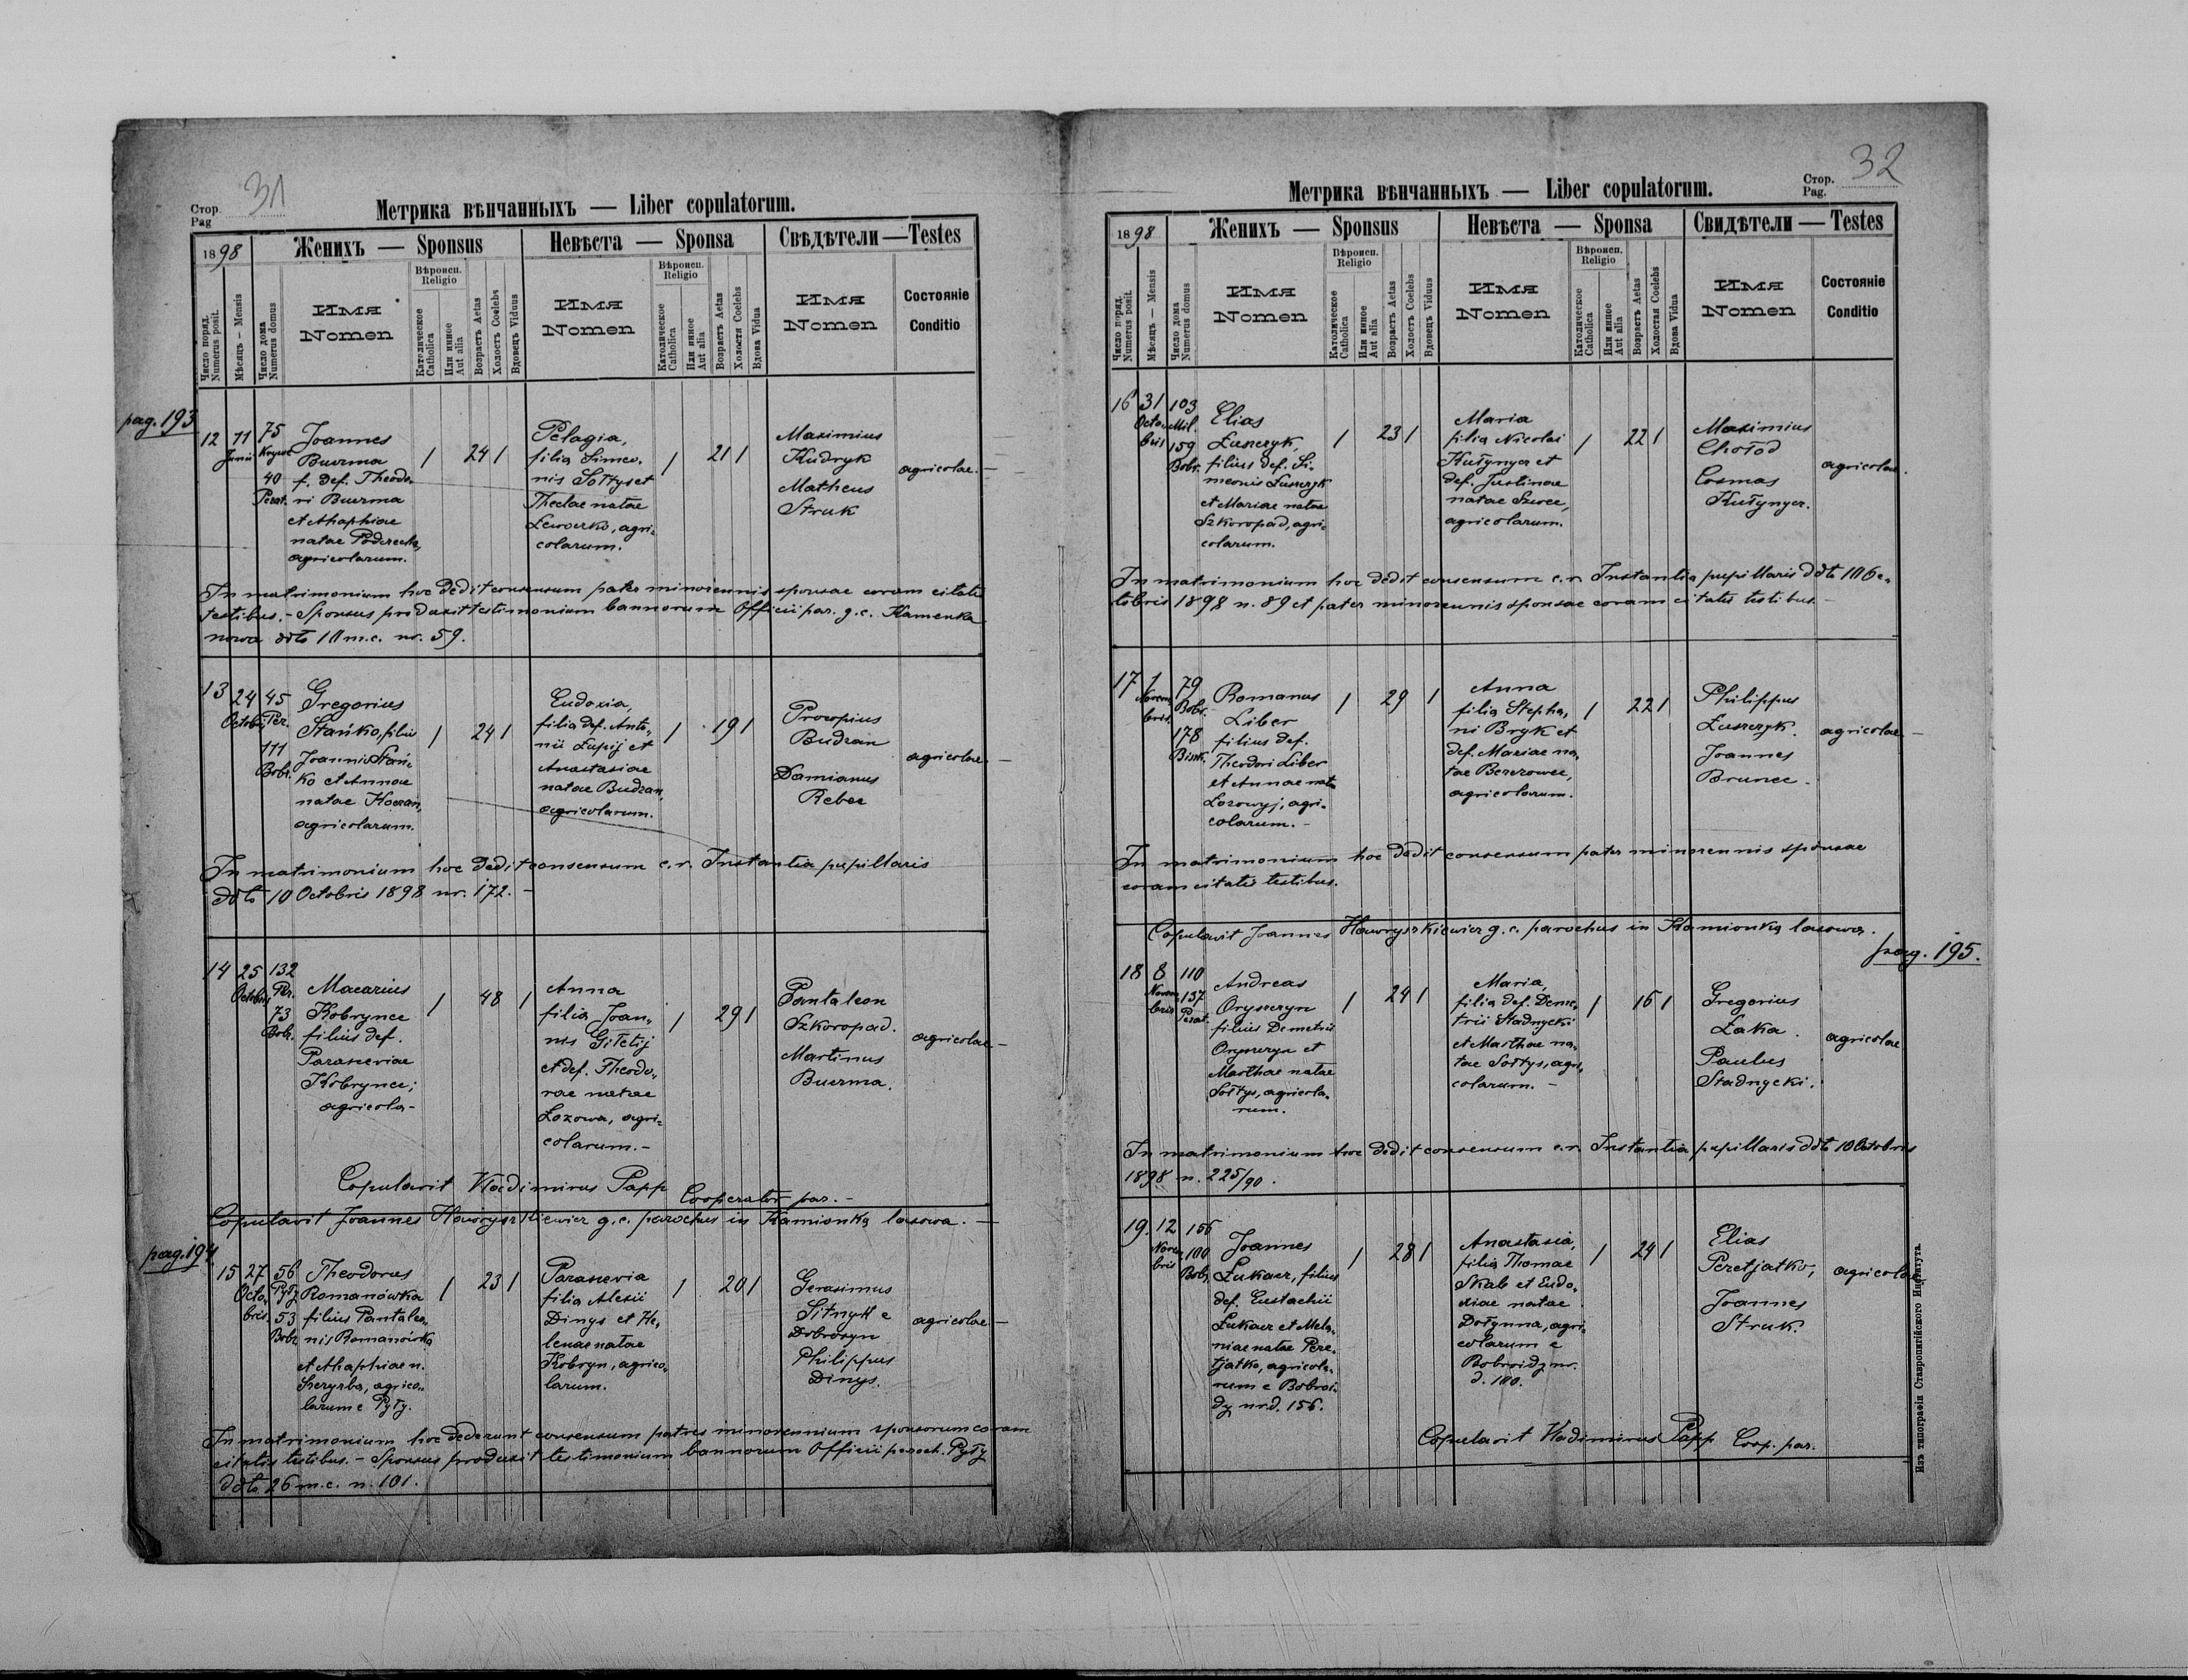 31
Стор.
Pag
Метрика вѣнчанныхъ — Liber copulatorum.
1898
Женихъ — Sponsus
Невѣста — Sponsa
Свѣдѣтели — Testes
Число поряд. Numerus posit.
Мѣсяцъ — Mensis
Число дома Numerus domus
Имя
Nomen
Вѣроисп.
Religio
Католическое Catholica
Или инное Aut alia
Возрастъ Aetas
Холостъ Coelebs
Вдовецъ Viduus
Имя
Nomen
Вѣроисп.
Religio
Католическое Catholica
Или инное Aut alia
Возрастъ Aetas
Холостя Coelebs
Вдова Vidua
Имя
Nomen
Состояніе
Conditio
pag. 193
12 11 Junii 75
40 Perat.
Joannes
Buurma
f. def. Theodo-
ri Buurma
et Ahaphiae
natae
agricolarum.
1 24 1
Pelagia,
filia Simeo-
nis Sołtys et
Theclae natae
agri-
colarum.
1 21 1
Maximius
Kudryk
Matheus
Struk
agricolae. —
In matrimonium hoc dedit consensum pater minorennis sponsae coram citatis
testibus. - Sponsus produxit testimonium bannorum Officii par. g. c. Kamenka
nowa ddto 10 m. c. nr. 59.
13 24 Octobr. 45 Per.
111 Bobr.
Gregorius
Stańko, filius
Joannis Stań-
ko et Annae
natae Koczan,
agricolarum.
1 24 1
Eudoxia,
filia def. Anto-
nii Łupij et
Anastasiae
natae Budzan,
agricolarum.
1 19 1
Procopius
Budzan
Damianus
Rebec
agricolae —
In matrimonium hoc dedit consensum c. r. Instantia pupillaris
ddto 10 Octobris 1898 nr. 172. -
14 25 Octobris 132 Per.
73 Bobr.
Macarius
Kobrynec
filius def.
Parasceviae
Kobrynec;
agricola -
1 48 1
Anna
filia Joan-
nis Gitelij
et def. Theodo-
rae natae
Łozowa, agri-
colarum. -
1 29 1
Pantaleon
Szkoropad.
Martinus
Buurma.
agricolae —
Copulavit Wladimirus Papp Cooperator par. -
Copulavit Joannes Hawryszkiewicz g. c. parochus in Kamionka lasowa. —
pag. 194
15 27 Octobris. 56 Pyły
53 Bobr.
Theodorus
Romanówka
filius Pantaleo-
nis Romanówka
et Ahaphiae n.
Szczyrba, agrico-
larum e Pyły.
1 23 1
Parascevia
filia Alexii
Dinys et He-
lenae natae
Kobryn, agrico-
larum.
1 20 1
Gerasimus
Sitnyk e
Dobrosyn
Philippus
Dinys.
agricolae —
In matrimonium hoc dederunt consensum patres minorennium sponsorum coram
citatis testibus. - Sponsus produxit testimonium bannorum Officii paroch. Pyły
ddto 26 m. c. n. 101.
32
Стор.
Pag.
Метрика вѣнчанныхъ — Liber copulatorum.
1898
Женихъ — Sponsus
Невѣста — Sponsa
Свидѣтели — Testes
Число поряд. Numerus posit.
Мѣсяцъ — Mensis
Число дома Numerus domus
Имя
Nomen
Вѣроисп.
Religio
Католическое Catholica
Или инное Aut alia
Возрастъ Aetas
Холостъ Coelebs
Вдовецъ Viduus
Имя
Nomen
Вѣроисп.
Religio
Католическое Catholica
Или инное Aut alia
Возрастъ Aetas
Холостая Coelebs
Вдова Vidua
Имя
Nomen
Состояніе
Conditio
16 31 Octobris 103 Mil.
159 Bobr.
Elias
Łuszczyk,
filius def. Si-
meonis Łuszczyk
et Mariae natae
Szkoropad, agri-
colarum.
1 23 1
Maria
filia Nicolai
Kułynycz et
def. Justinae
natae Szwec,
agricolarum.
1 22 1
Maximius
Chołod
Cosmas
Kułynycz.
agricolae.
In matrimonium hoc dedit consensum c. r. Instantia pupillaris ddto 10 Oc-
tobris 1898 n. 89 et pater minorennis sponsae coram citatis testibus. -
17 1 Novembris. 79 Bobr.
178
Romanus
Liber
filius def.
Theodori Liber
et Annae nata
Lozowyj, agri-
colarum. -
1 29 1
Anna
filia Stepha-
ni Bryk et
def. Mariae na-
tae Berezowec,
agricolarum.
1 22 1
Philippus
Łuszczyk.
Joannes
Brunec -
agricolae —
In matrimonium hoc dedit consensum pater minorennis sponsae
coram citatis testibus.
Copulavit Joannes Hawryszkiewicz g. c. parochus in Kamionka lasowa.
pag. 195.
18 8 Novembris 110
137 Perat.
Andreas
Oryszczyn
filius Demetrii
Oryszczyn et
Marthae natae
Sołtys, agricola-
rum.
1 24 1
Maria,
filia def. Deme-
trii Stadnycki
et Marthae na-
tae Sołtys, agri-
colarum. -
1 16 1
Gregorius
Łaka.
Paulus
Stadnycki.
agricolae
In matrimonium hoc dedit consensum c. r. Instantia pupillaris ddto 10 Octobris
1898 n. 225/90.
19. 12 Novembris 156
100 Bobr.
Joannes
Łukacz, filius
def. Eustachii
Łukacz et Mela-
niae natae Pere-
tjatko, agricola-
rum e Bobroi-
dy nr. d. 156.
1 28 1
Anastasia,
filia Thomae
Skab et Eudo-
xiae natae
Dołynna, agri-
colarum e
Bobroidy nr.
d. 100.
1 24 1
Elias
Peretjatko,
Joannes
Struk.
agricolae
Copulavit Wladimirus Papp Coop. par.
Изъ типографіи Ставропигійского Института.